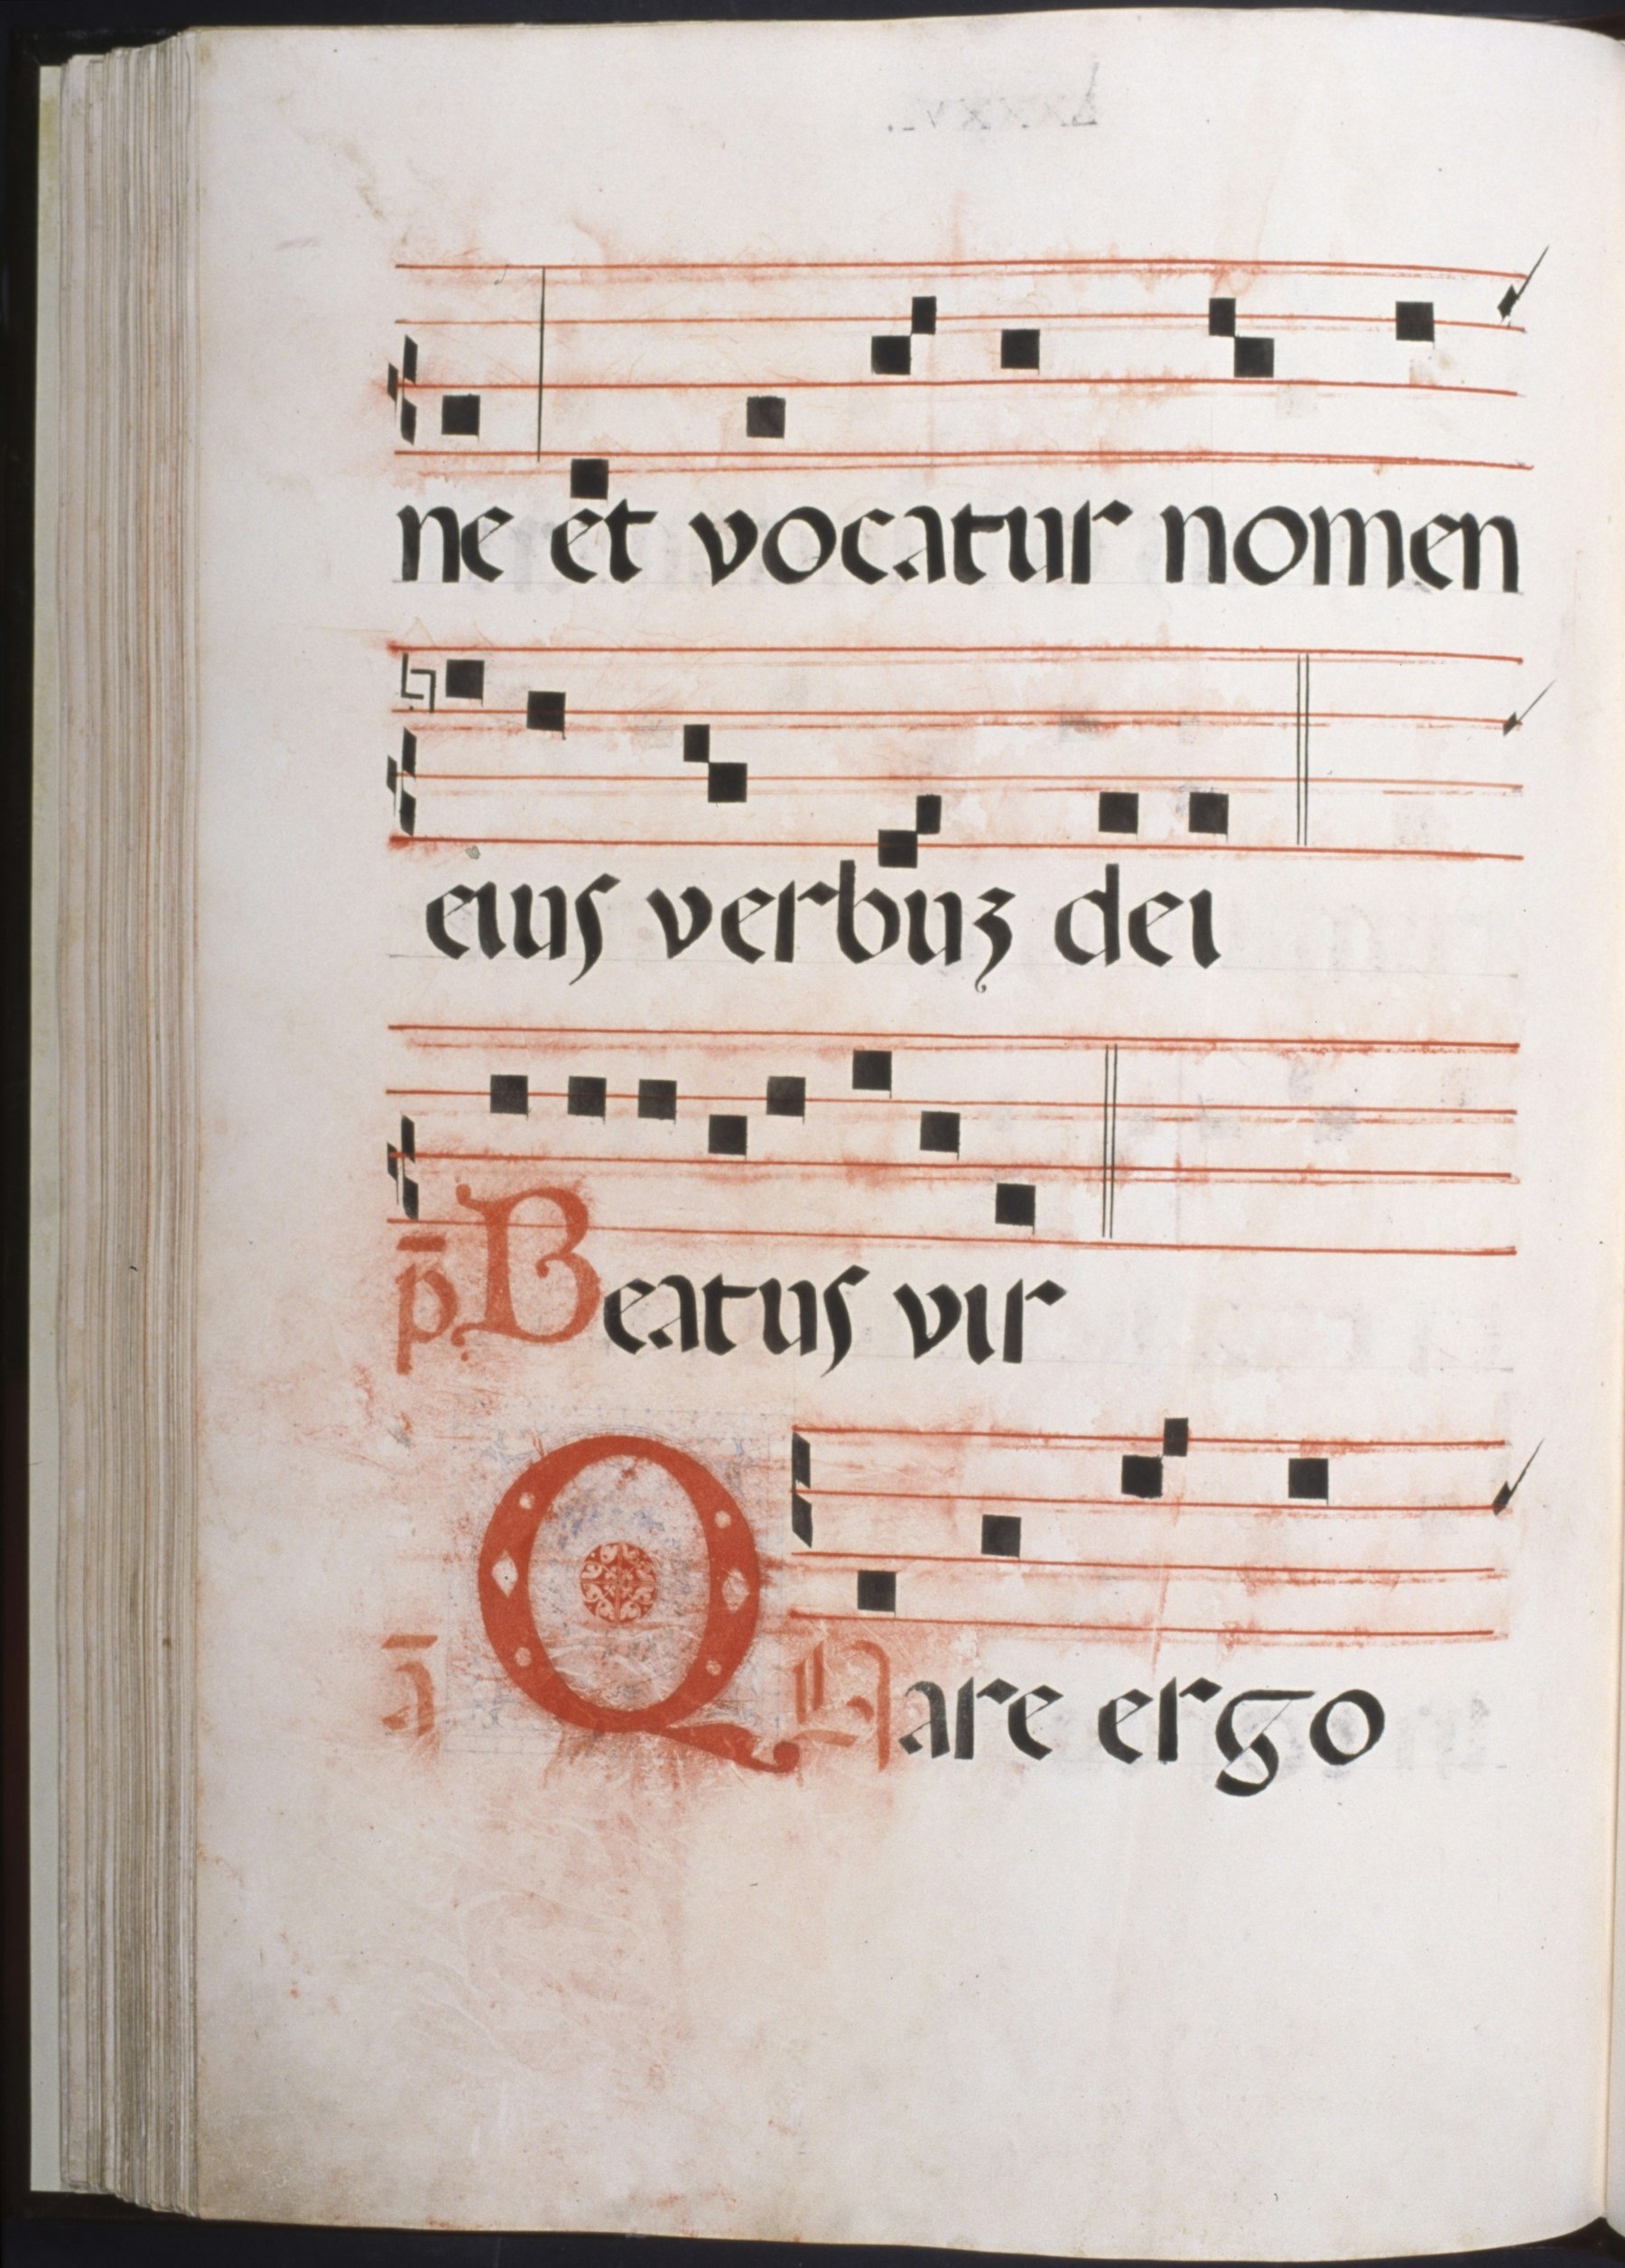 ne et vocatur nomen
eius verbuʒ dei
p̄ Beatus vir
ā QUare ergo